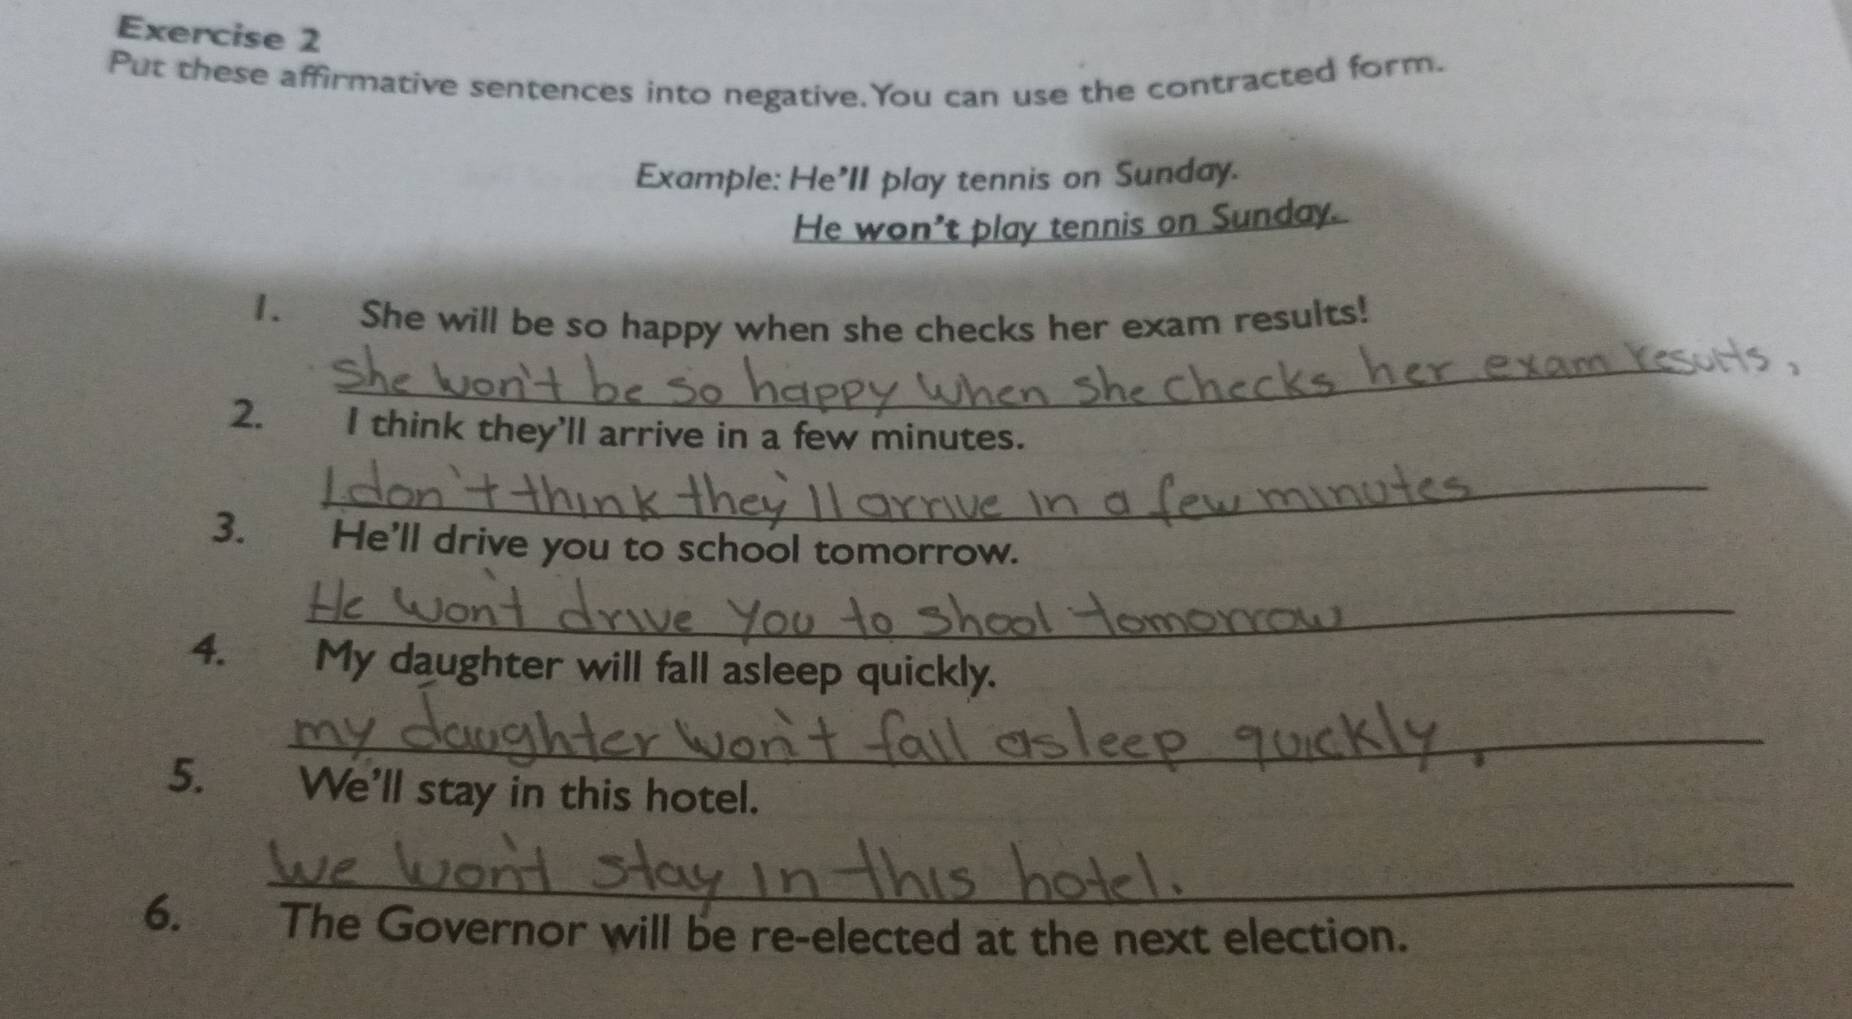 Exercise 2
Put these affirmative sentences into negative. You can use the contracted form.
Example: He'll play tennis on Sunday.
He won't play tennis on Sunday.
1. She will be so happy when she checks her exam results!
She won't be so happy when she checks her exam results,
2. I think they'll arrive in a few minutes.
I don't think they'll arrive in a few minutes
3. He'll drive you to school tomorrow.
He won't drive you to shool tomorrow
4. My daughter will fall asleep quickly.
my daughter won't fall asleep quickly,
5. We'll stay in this hotel.
we won't stay in this hotel.
6. The Governor will be re-elected at the next election.